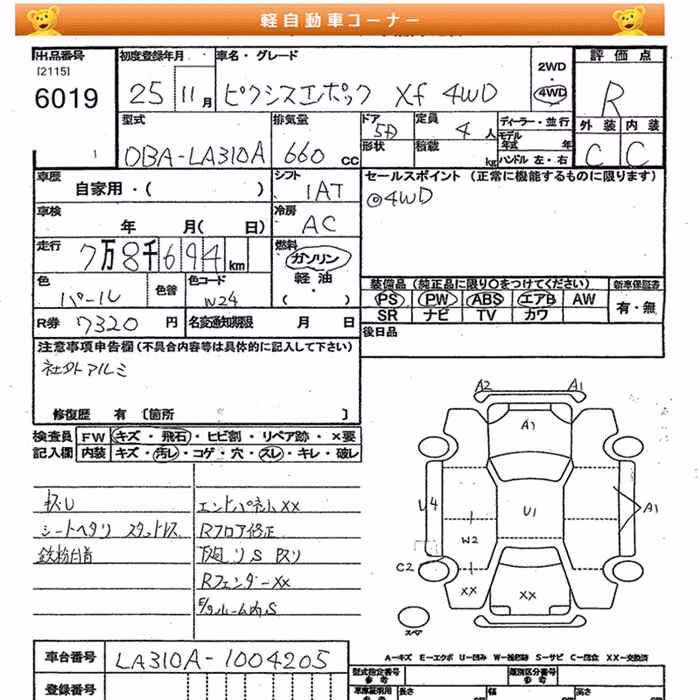 軽自動車コーナー
出品番号 初度登録年月 車名・グレード 2WD 評価点
[2115]
6019 25 11月 ピクシスエポック Xf 4WD 4WD R
型式 排気量 ドア 定員 ディーラー・並行 外装 内装
DBA-LA310A 660 cc 5D 4人 モデル年式 年 C C
形状 積載 kg ハンドル 左・右
車歴 シフト セールスポイント(正常に機能するものに限ります)
自家用・( ) IAT ◎4WD
車検 冷房
年 月( 日) AC
走行 燃料
7万8千694km ガソリン
軽油
・( )
色 色替 色コード 装備品(純正品に限り○をつけてください) 新車保証書
パール W24 PS PW ABS エアB AW 有・無
SR ナビ TV カワ
R券 7320円 名変通知期限 月 日 後日品
注意事項申告欄(不具合内容等は具体的に記入して下さい)
社外アルミ
修復歴 有[箇所 ]
検査員 FW キズ・飛石・ヒビ割・リペア跡・×要
記入欄 内装 キズ・汚レ・コゲ・穴・スレ・キレ・破レ
エンドパネルXX
シートヘタリ スタッドレス Rフロア修正
鉄粉付着 下廻りS
RフェンダーXX
ルーム内S
A2 A1
A1
U4 U1 A1
W2
C2
XX XX
スペア
A-キズ E-エクボ U-凹み W-補修跡 S-サビ C-腐食 XX-交換済
車台番号 LA310A-1004205 型式指定番号 参考 類別区分番号 参考
登録番号 長さ 幅 高さ